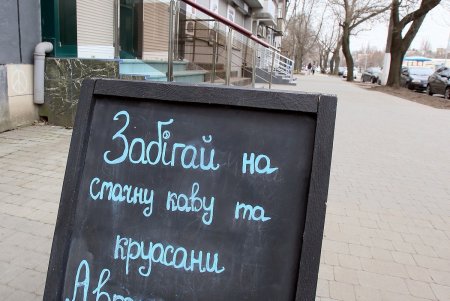 Забігай на
смачну каву та
круасани